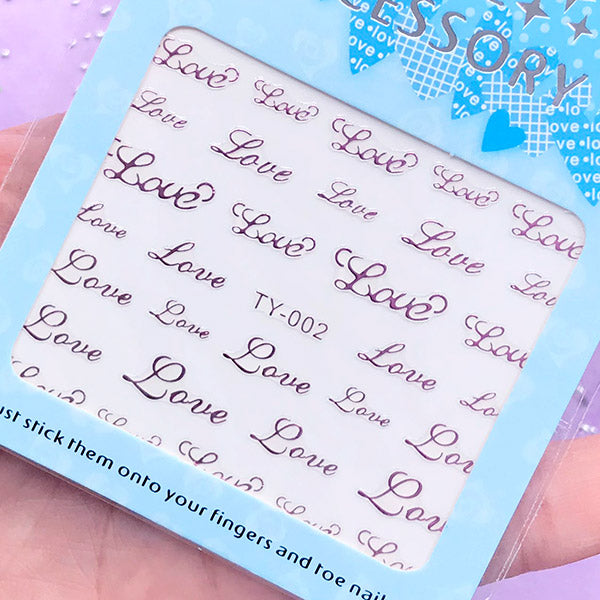 ESSORY
e·love
e·lo
ove·lo
love·
Love Love Love Love Love
Love Love Love Love Love
Love Love Love Love
Love Love TY-002 Love Love
Love Love Love Love Love
Love Love Love Love
Love Love Love Love Love
ust stick them onto your fingers and toe nail